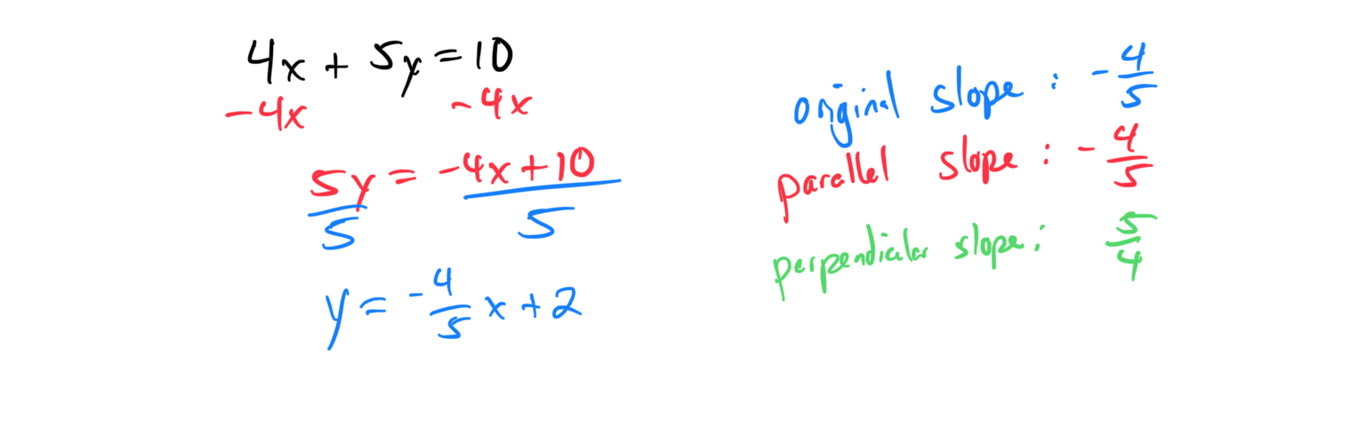 4x + 5y = 10
-4x -4x
5y = -4x + 10
5 5
y = -4/5 x + 2
original slope : -4/5
parallel slope : -4/5
perpendicular slope : 5/4